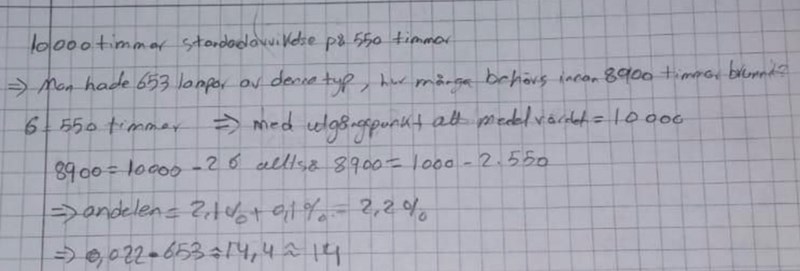 10000 timmar standardavvikelse på 550 timmar
⇒ Man hade 653 lampor av denna typ, hur många behövs innan 8900 timmar brunnit?
6 = 550 timmar ⇒ med utgångpunkt att medelvärdet = 10 000
8900 = 10000 - 2 6 alltså 8900 = 1000 - 2.550
⇒ andelen = 2,1% + 0,1% = 2,2%
⇒ 0,022 · 653 ≈ 14,4 ≈ 14